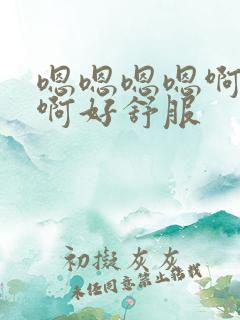 嗯嗯嗯嗯啊
啊好舒服
初拟灰灰
未经同意禁止转载